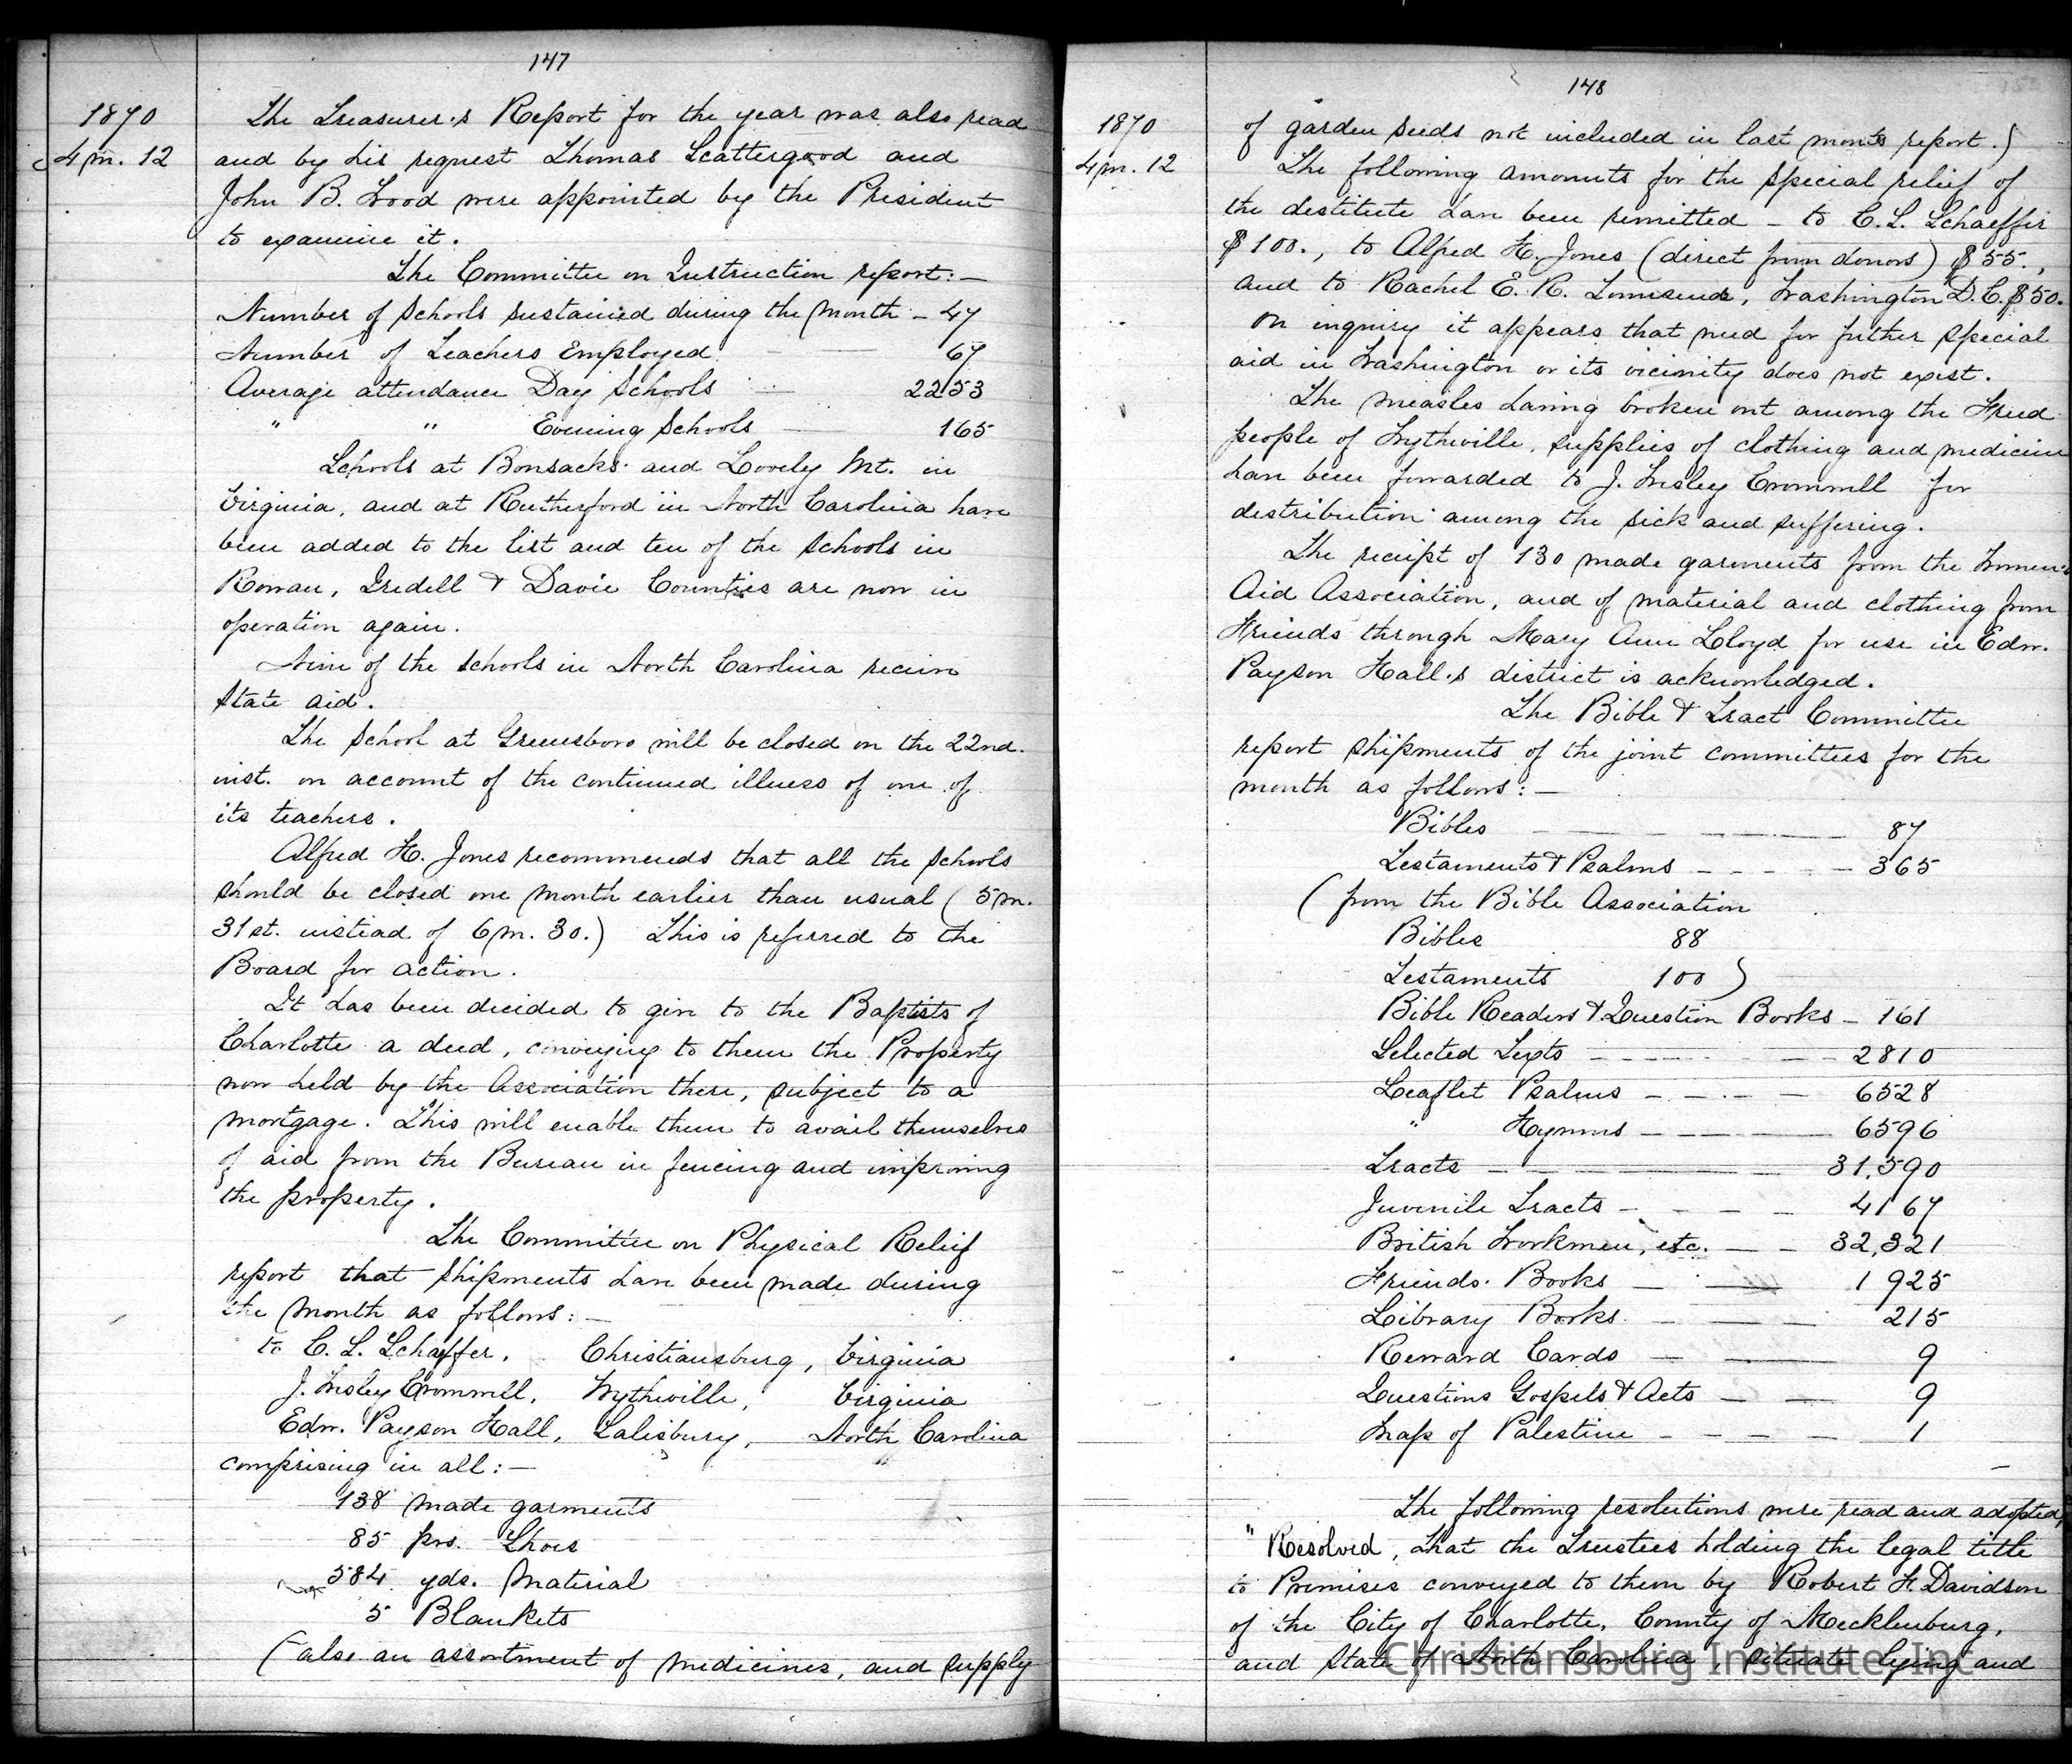 147
1870
4 m. 12
The Treasurer's Report for the year was also read
and by his request Thomas Scattergood and
John B. Wood were appointed by the President
to examine it.
The Committee on Instruction report:—
Number of Schools sustained during the Month — 47
Number of Teachers Employed — 67
Average attendance Day Schools — 2253
" " Evening Schools — 165
Schools at Bonsacks and Lovely Mt. in
Virginia, and at Rutherford in North Carolina have
been added to the list and ten of the Schools in
Rowan, Iredell & Davie Counties are now in
operation again.
Nine of the Schools in North Carolina receive
State aid.
The School at Greensboro will be closed on the 22nd.
inst. on account of the continued illness of one of
its teachers.
Alfred H. Jones recommends that all the Schools
should be closed one month earlier than usual (5 m.
31st. instead of 6 m. 30.) This is referred to the
Board for action.
It has been decided to give to the Baptists of
Charlotte a deed, conveying to them the Property
now held by the Association there, subject to a
mortgage. This will enable them to avail themselves
of aid from the Bureau in fencing and improving
the property.
The Committee on Physical Relief
report that Shipments have been made during
the Month as follows:—
to C. L. Schaffer, Christiansburg, Virginia
J. Wesley Cromwell, Wytheville, Virginia
Edw. Payson Hall, Salisbury, North Carolina
comprising in all:—
138 made garments
85 prs. Shoes
584 yds. Material
5 Blankets
(also an assortment of medicines, and supply
148
1870
4 m. 12
of garden seeds not included in last month's report.)
The following amounts for the special relief of
the destitute have been remitted — to C. L. Schaeffer
$100., to Alfred H. Jones (direct from donors) $55.,
and to Rachel E. R. Townsend, Washington D.C. $50.
On inquiry it appears that need for further special
aid in Washington or its vicinity does not exist.
The measles having broken out among the Freed
people of Wytheville, supplies of clothing and medicine
have been forwarded to J. Wesley Cromwell for
distribution among the sick and suffering.
The receipt of 130 made garments from the Women's
Aid Association, and of material and clothing from
Friends through Mary Ann Lloyd for use in Edw.
Payson Hall's district is acknowledged.
The Bible & Tract Committee
report shipments of the joint committees for the
month as follows:—
Bibles — 87
Testaments & Psalms — 365
(from the Bible Association
Bibles 88
Testaments 100)
Bible Readers & Question Books — 161
Selected Texts — 2810
Leaflet Psalms — 6528
" Hymns — 6596
Tracts — 31,590
Juvenile Tracts — 4167
British Workmen, etc. — 32,321
Friends' Books — 1925
Library Books — 215
Reward Cards — 9
Questions Gospels & Acts — 9
Map of Palestine — 1
The following resolutions were read and adopted,
"Resolved, That the Trustees holding the legal title
to Premises conveyed to them by Robert F. Davidson
of the City of Charlotte, County of Mecklenburg,
and State of North Carolina, situate lying and
Christiansburg Institute, Inc